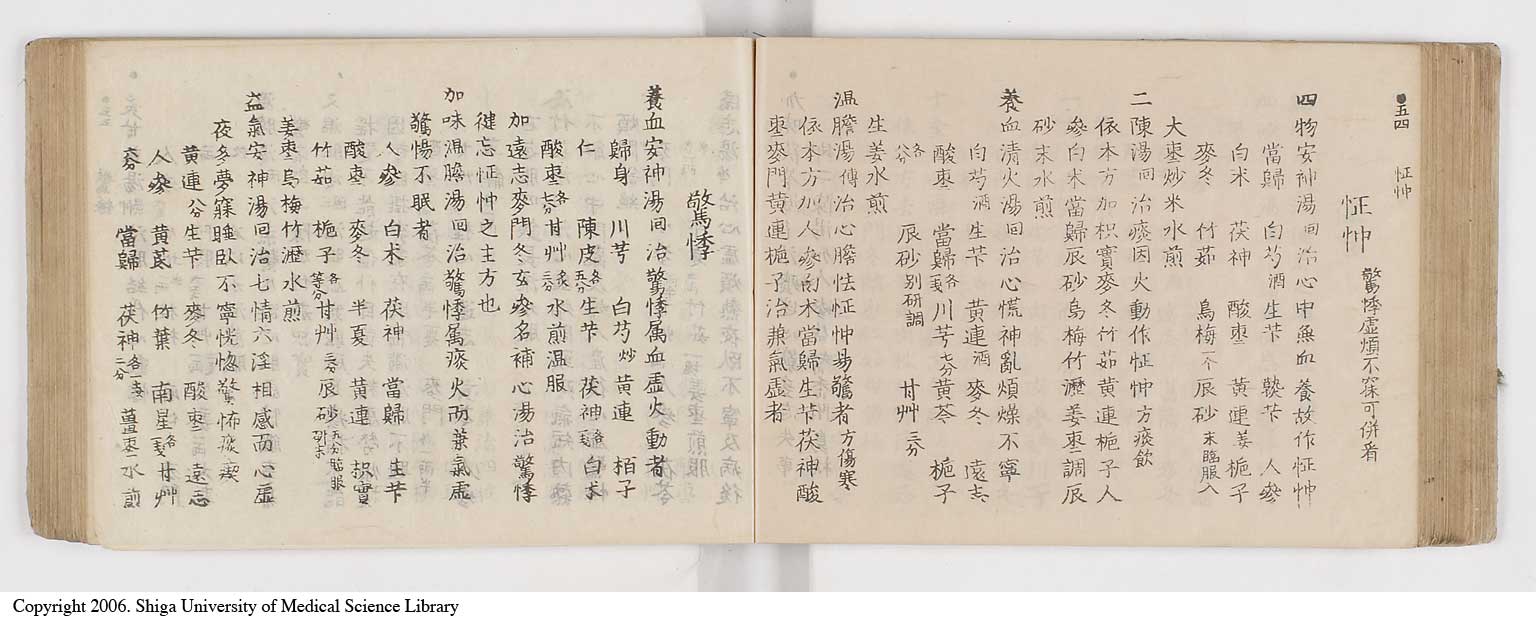 五四 怔忡
怔忡 驚悸虚煩不寐可併看
四物安神湯 回 治心中無血養故作怔忡
當歸 白芍 酒 生芐 䕪芐 人參
白术 茯神 酸棗 黄連 姜 梔子
麥冬 竹茹 烏梅 一个 辰砂 末臨服入
大棗炒米水煎
二陳湯 回 治痰因火動作怔忡 方痰飲
依本方加枳實麥冬竹茹黄連梔子人
參白术當歸辰砂烏梅竹瀝姜棗調辰
砂末水煎
養血清火湯 回 治心慌神亂煩燥不寧
白芍 酒 生芐 黄連 酒 麥冬 遠志
酸棗 當歸 各 川芎 七分 黄芩 梔子
各分 辰砂 别研調 甘艸 三分
生姜水煎
温膽湯 傳 治心膽怯怔忡易驚者 方傷寒
依本方加人參白术當歸生芐茯神酸
棗麥門黄連梔子治兼氣虚者
驚悸
養血安神湯 回 治驚悸属血虚火動者
歸身 川芎 白芍 炒 黄連 栢子
仁 陳皮 各五分 生芐 茯神 各 白术
酸棗 各七分 甘艸 炙三分 水煎温服
加遠志麥門冬玄參名補心湯治驚悸
徤忘怔忡之主方也
加味温膽湯 回 治驚悸属痰火而兼氣虚
驚惕不眠者
人參 白术 茯神 當歸 生芐
酸棗 麥冬 半夏 黄連 枳實
竹茹 梔子 各等分 甘艸 辰砂 五分臨服研末
姜棗烏梅竹瀝水煎
益氣安神湯 回 治七情六淫相感而心虚
夜多夢寐睡臥不寧恍惚驚怖痰癭
黄連 八分 生芐 麥冬 酸棗 遠志
人參 黄芪 竹葉 南星 各 甘艸
當歸 茯神 薑棗水煎
Copyright 2006. Shiga University of Medical Science Library